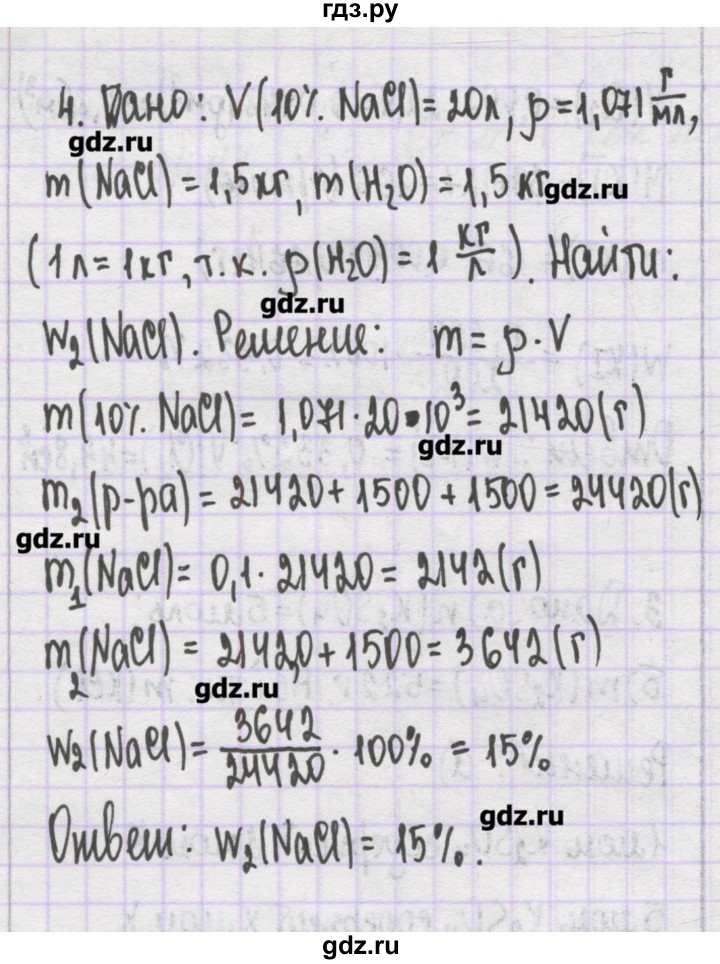 гдз.ру
4. Дано: V(10% NaCl) = 20л, ρ = 1,071 г/мл,
gdz.ru
m(NaCl) = 1,5кг, m(H₂O) = 1,5 кг
gdz.ru
(1л = 1кг, т.к. ρ(H₂O) = 1 кг/л). Найти:
gdz.ru
w₂(NaCl). Решение: m = ρ·V
m(10% NaCl) = 1,071·20·10³ = 21420(г)
gdz.ru
m₂(р-ра) = 21420 + 1500 + 1500 = 24420(г)
gdz.ru
m₁(NaCl) = 0,1·21420 = 2142(г)
m₂(NaCl) = 2142,0 + 1500 = 3642(г)
gdz.ru
w₂(NaCl) = 3642/24420 · 100% = 15%
gdz.ru
Ответ: w₂(NaCl) = 15%.
gdz.ru